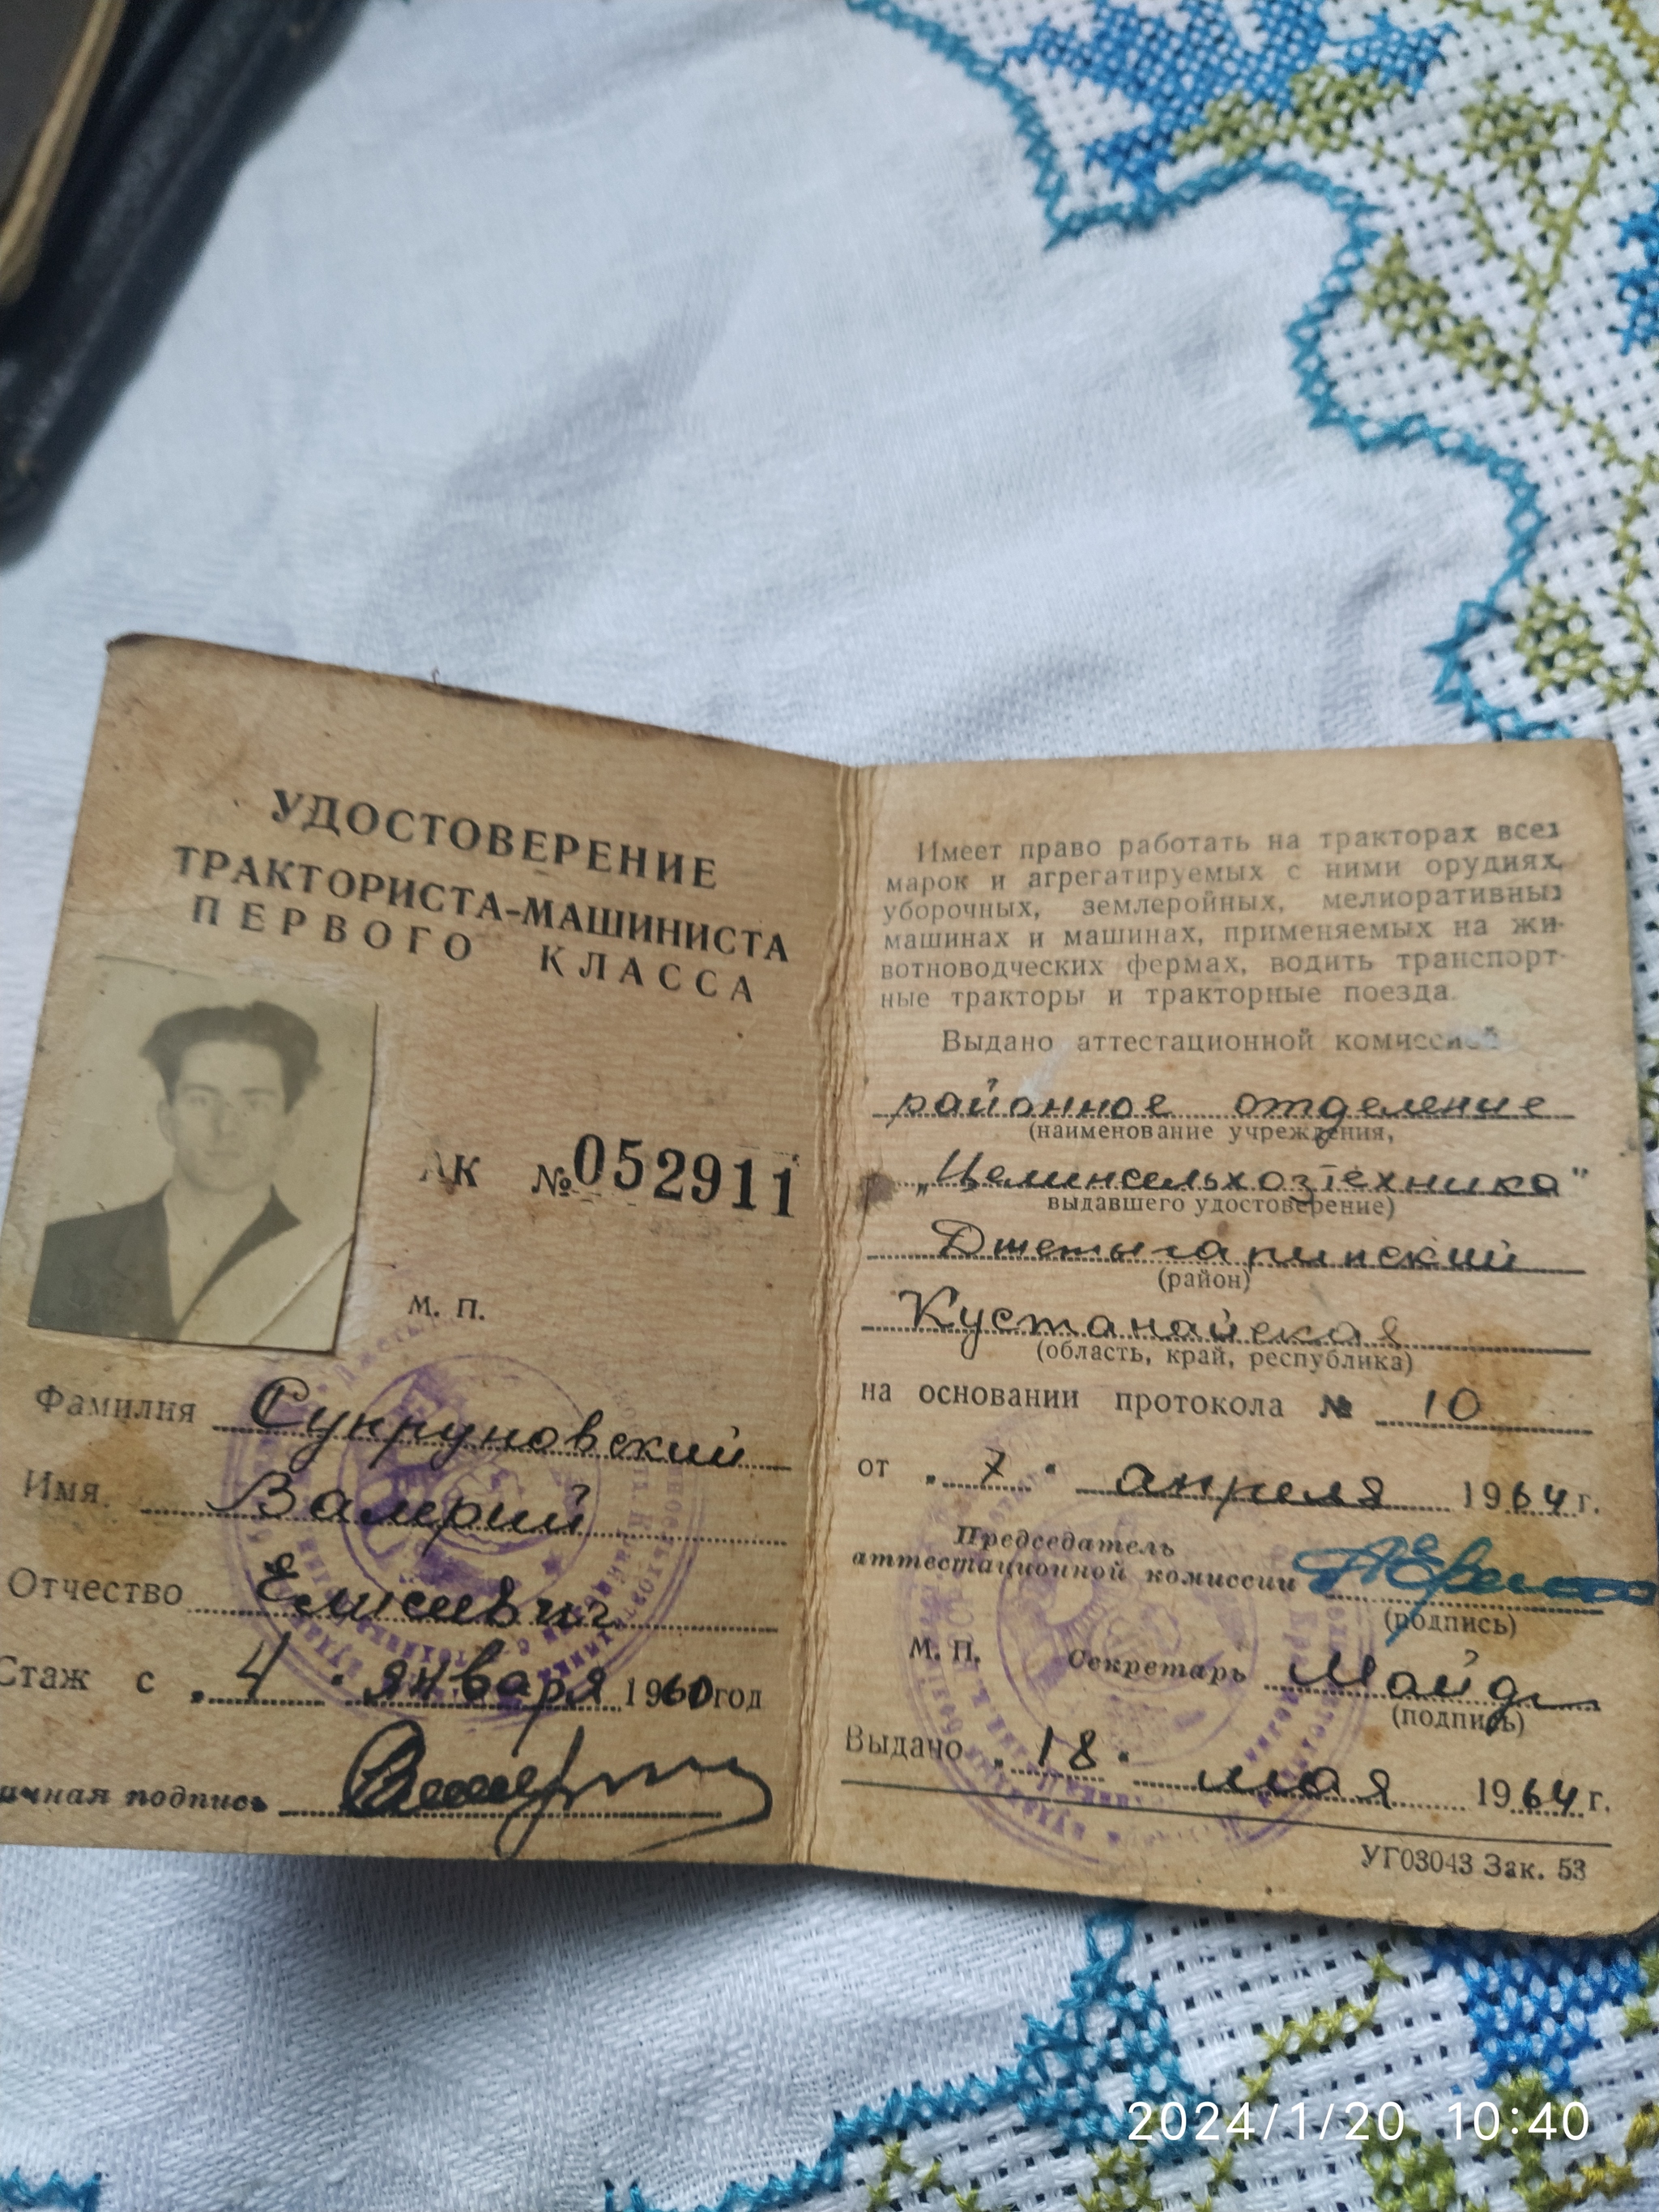 УДОСТОВЕРЕНИЕ
ТРАКТОРИСТА-МАШИНИСТА
ПЕРВОГО КЛАССА
АК №052911
М. П.
Фамилия Супруновский
Имя Валерий
Отчество Елисеевич
Стаж с „4" января 1960 год
ичная подпись
Имеет право работать на тракторах всех
марок и агрегатируемых с ними орудиях,
уборочных, землеройных, мелиоративных
машинах и машинах, применяемых на жи-
вотноводческих фермах, водить транспорт-
ные тракторы и тракторные поезда.
Выдано аттестационной комиссией
районное отделение
(наименование учреждения,
„Целинсельхозтехника"
выдавшего удостоверение)
Джетыгаринский
(район)
Кустанайская
(область, край, республика)
на основании протокола № 10
от „7" апреля 1964 г.
Председатель
аттестационной комиссии
(подпись)
М. П. Секретарь
(подпись)
Выдано „18" мая 1964 г.
УГ03043 Зак. 53
2024/1/20 10:40